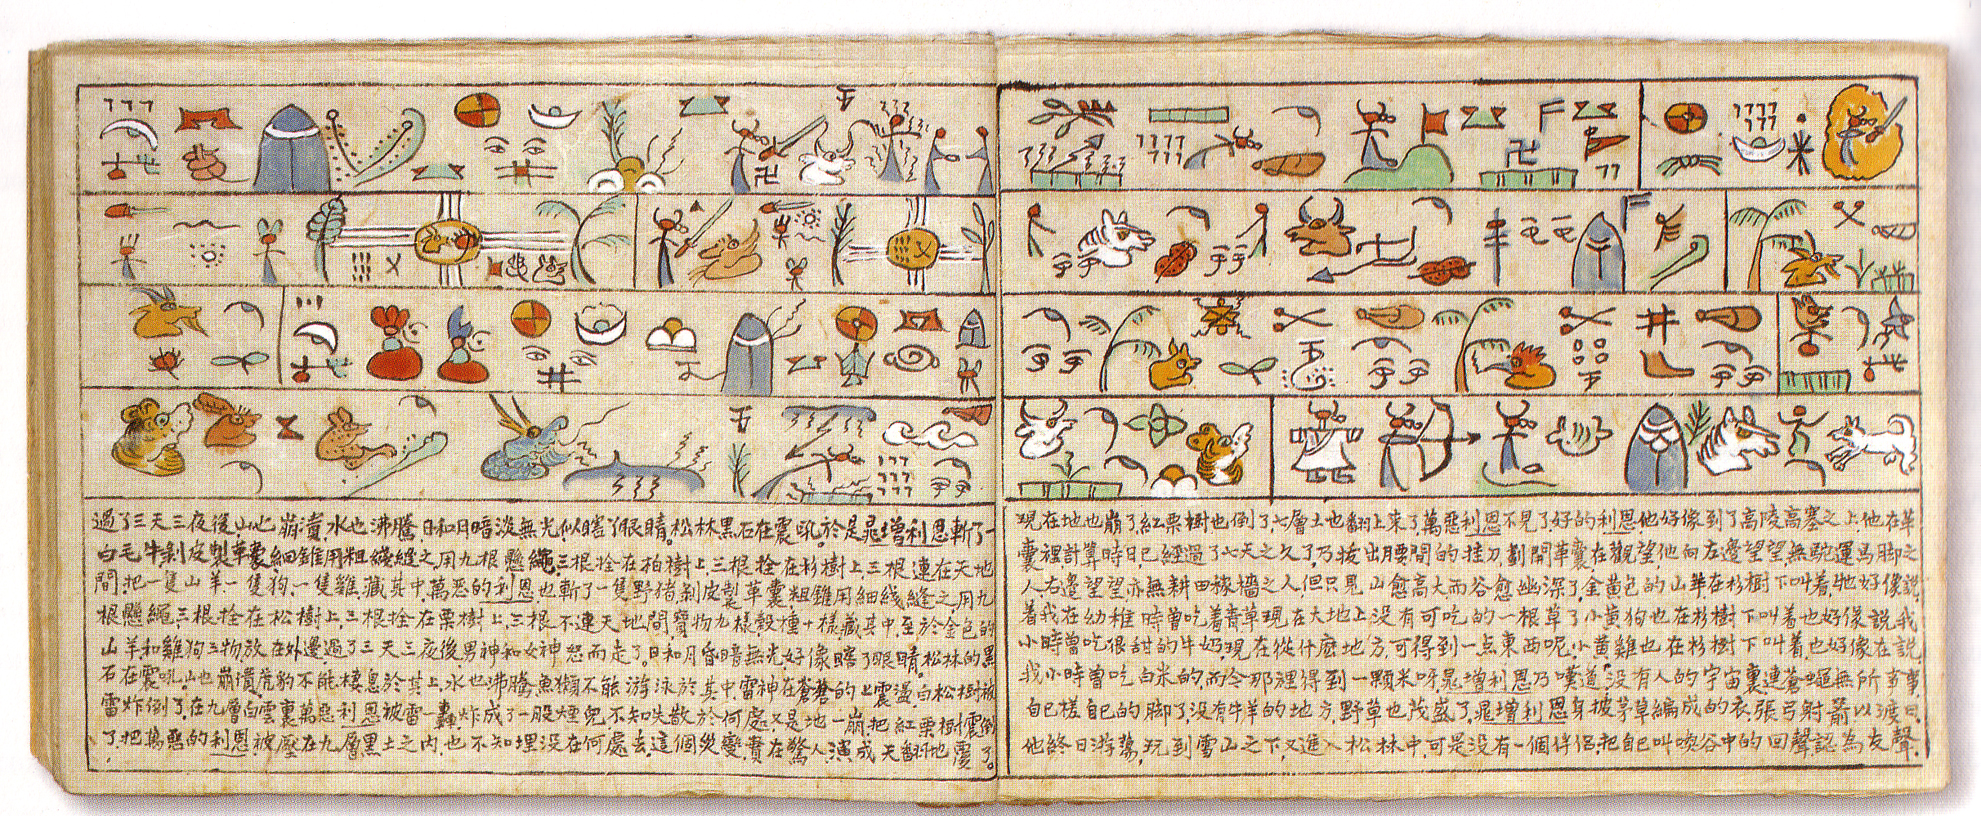 過了三天三夜後山也崩潰,水也沸騰,日和月暗淡無光,似瞎了眼睛,松林黑石在震吼,於是晁增利恩斬了一
白毛牛剝皮製革囊,細錐用粗綫縫之,用九根懸繩,三根拴在柏樹上,三根拴在杉樹上,三根連在天地
間,把一隻山羊,一隻狗,一隻雞藏其中,萬惡的利恩也斬了一隻野猪剝皮製草囊,粗錐用細綫縫之,用九
根懸繩,三根拴在松樹上,三根拴在栗樹上,三根不連天地間,寶物九樣穀種十樣藏其中,至於金色的
山羊和雞狗三物放在外邊,過了三天三夜後男神和女神怒而走了,日和月昏暗無光好像瞎了眼睛,松林的黑
石在震吼,山也崩潰,虎豹不能棲息於其上,水也沸騰,魚獺不能游泳於其中,雷神在蒼蒼的上震盪,白松樹被
雷炸倒了,在九層白雲裏萬惡利恩被雷一轟炸成了一股煙儿不知失散於何處,又是地一崩把紅栗樹震倒
了,把萬惡的利恩被壓在九層黑土之内,也不知埋没在何處去,這個災變實在驚人,演成天翻地覆了。
現在地也崩了,紅栗樹也倒了,七層土也翻上來了,萬惡利恩不見了,好的利恩他好像到了高陵高寨之上,他在革
囊裡計算時日,已經過了七天之久了,乃拔出腰間的挂刀,劃開革囊在觀望,他向左邊望望,無馱運馬脚之
人,右邊望望亦無耕田稼穡之人,但只見山愈高大而谷愈幽深了,金黄色的山羊在杉樹下叫着,牠好像說,
着我在幼稚時曾吃着青草,現在大地上没有可吃的一根草了,小黄狗也在杉樹下叫着,也好像說,我
小時曾吃很甜的牛奶,現在從什麽地方,可得到一点東西呢,小黄雞也在杉樹下叫着,也好像在說
我小時曾吃白米的,而今那裡得到一顆米呀,晁增利恩乃嘆道,没有人的宇宙裏連蒼蠅無所事事
自已搓自己的脚了,没有牛羊的地方,野草也茂盛了,晁增利恩身披茅草編成的衣,張弓射箭以渡日,
他終日游蕩,玩到雪山之下,又進入松林中,可是没有一個伴侣,把自己叫喚谷中的回聲,認為友聲,